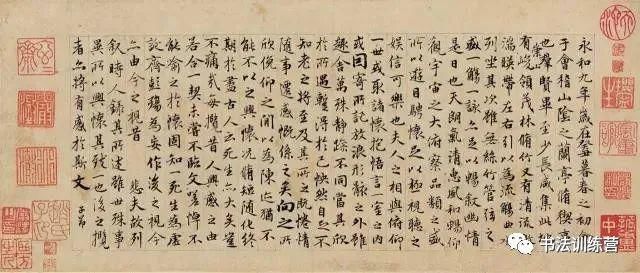 永和九年歲在癸丑暮春之初會
于會稽山陰之蘭亭脩稧事
也群賢畢至少長咸集此地
有崇山峻領茂林脩竹又有清流激
湍暎帶左右引以為流觴曲水
列坐其次雖無絲竹管弦之
盛一觴一詠亦足以暢叙幽情
是日也天朗氣清惠風和暢仰
觀宇宙之大俯察品類之盛
所以遊目騁懷足以極視聽之
娛信可樂也夫人之相與俯仰
一世或取諸懷抱悟言一室之內
或因寄所託放浪形骸之外雖
趣舍萬殊靜躁不同當其欣
於所遇蹔得於己怏然自足不
知老之將至及其所之既惓情
隨事遷感慨係之矣向之所
欣俛仰之間以為陳迹猶不
能不以之興懷況脩短隨化終
期於盡古人云死生亦大矣豈
不痛哉每攬昔人興感之由
若合一契未嘗不臨文嗟悼不
能喻之於懷固知一死生為虛
誕齊彭殤為妄作後之視今
亦由今之視昔 悲夫故列
叙時人錄其所述雖世殊事
異所以興懷其致一也後之攬
者亦將有感於斯文
子昂
书法训练营